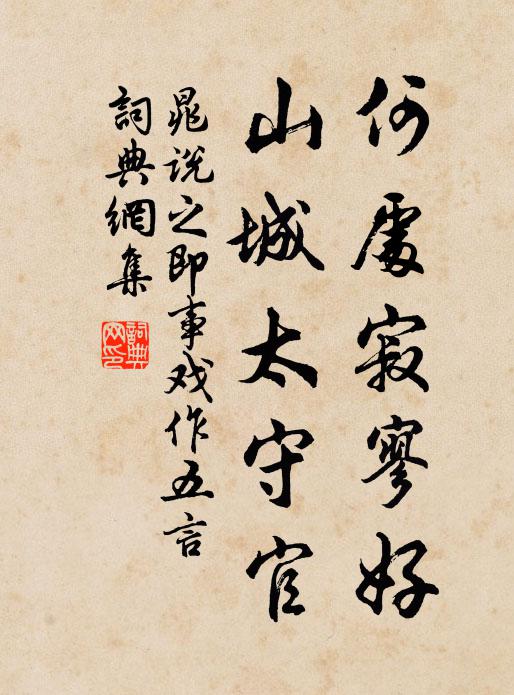 何處寂寥好
山城太守官
晁说之即事戏作五言
詞典網集
詞典
网印